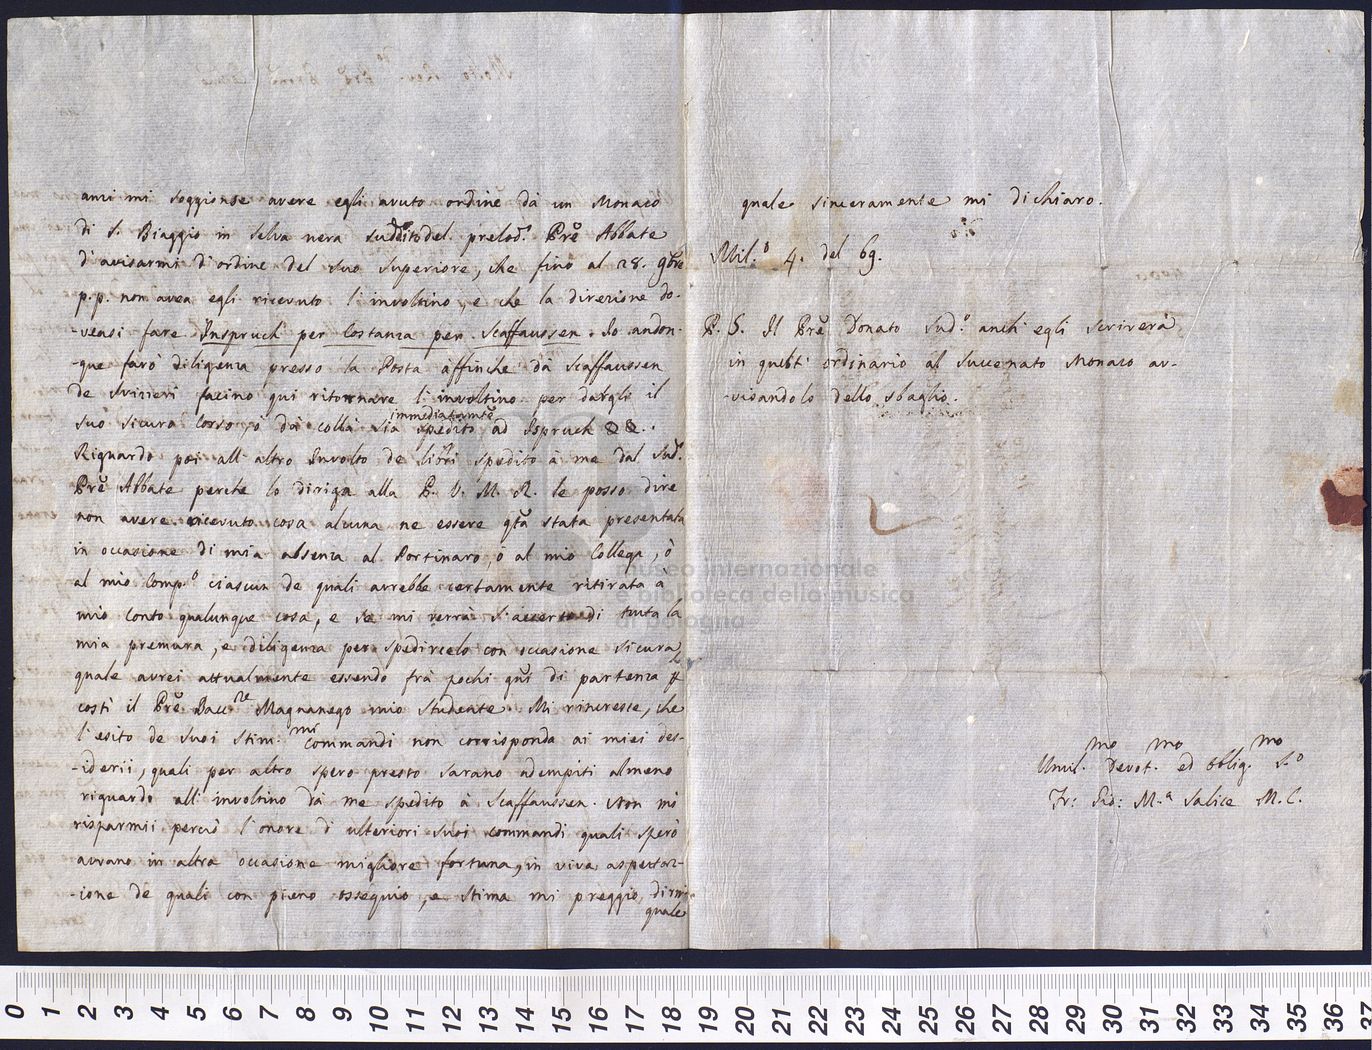 anzi mi soggionse avere egli avuto ordine dà un Monaco
di S. Biaggio in Selva nera suddito del prelod.º Prẽ Abbate
d'avisarmi d'ordine del suo Superiore, che fino al 28. 9bre
p.p. non avea egli ricevuto l'involtino, e che la direzione do-
-veasi fare Inspruch per Costanza per Scaffaussen. Io andon-
-que farò diligenza presso la Posta affinche dà Scaffaussen
de Svizieri facino qui ritornare l'involtino per dargli il
suo sicura corso, ò dà collà sia immediatamte spedito ad Ispruck
Riguardo poi all'altro Involto de libri spedito à me dal Sud.º
Prẽ Abbate perche lo diriga alla P. V. M. R. le posso dire
non avere ricevuto cosa alcuna ne essere qta stata presentata
in occasione di mia absenza al Portinaro, ò al mio Collega, ò
al mio Comp.º ciascun de quali avrebbe certamente ritirata a
mio conto qualunque cosa, e se mi verrà s'accerti di tutta la
mia premura, e diligenza per spedircelo con occasione sicura
quale avrei attualmente essendo frà pochi gni di partenza p
costì il Prẽ Bacc.re Magnanego mio Studente. Mi rincresce, che
l'esito de suoi Stim.mi Commandi non corrisponda ai miei des-
-iderii, quali per altro spero presto sarano adempiti almeno
riguardo all'involtino dà me spedito à Scaffaussen. Non mi
risparmii perciò l'onore di ulteriori suoi commandi quali spero
avrano in altra occasione migliore fortuna, in viva aspettaz-
-ione de quali con pieno ossequio, e stima mi preggio dirmi
quale
quale sinceramente mi dichiaro.
Mil.º 4. del 69.
P. S. Il Prẽ Donato Sud.º anch'egli scriverà
in quest'ordinario al succenato Monaco av-
-visandolo dello sbaglio.
Umil.mo Devot.mo ed Obblig.mo S.º
Fr: Gio: M.ª Salice M. C.
museo internazionale
e biblioteca della musica
di bologna
0 1 2 3 4 5 6 7 8 9 10 11 12 13 14 15 16 17 18 19 20 21 22 23 24 25 26 27 28 29 30 31 32 33 34 35 36 37